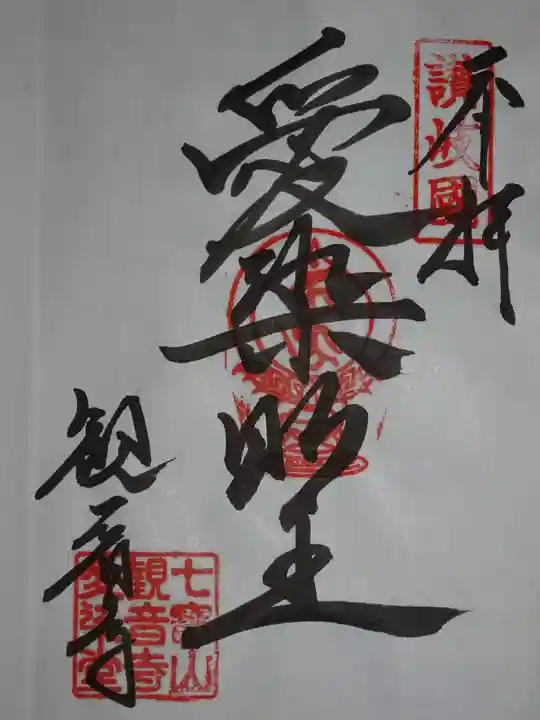 奉拝
讃岐國
愛染明王
観音寺
七寳山
観音寺
愛染堂